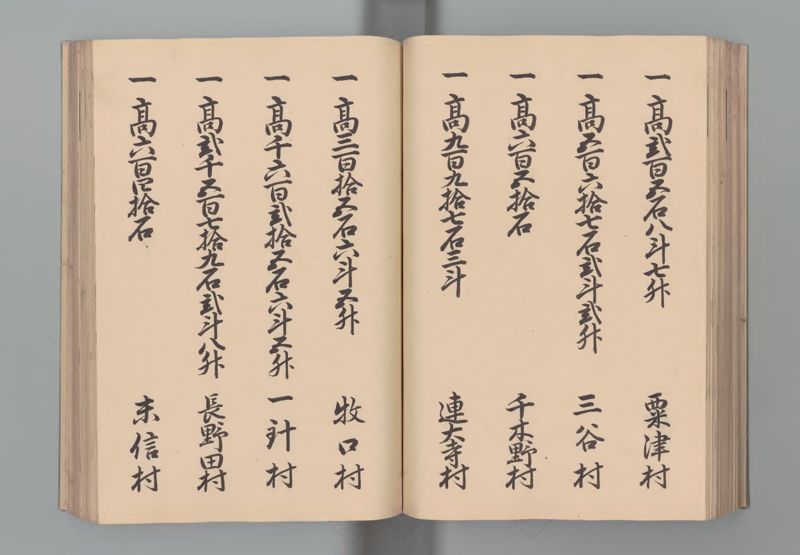 一 高弐百五石八斗七舛 粟津村
一 高五百六拾七石弐斗弐舛 三谷村
一 高六百五拾石 千木野村
一 高九百九拾七石三斗 連大寺村
一 高三百拾五石六斗五舛 牧口村
一 高千六百弐拾五石六斗五舛 一針村
一 高弐千五百七拾九石弐斗八舛 長野田村
一 高六百四拾石 末信村